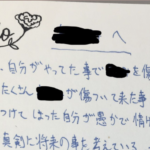 へ
、自分がやってた事で を傷
たくさん が傷ついて来た事
つけてしまった自分が愚かで情け
真剣に将来の事を考えている